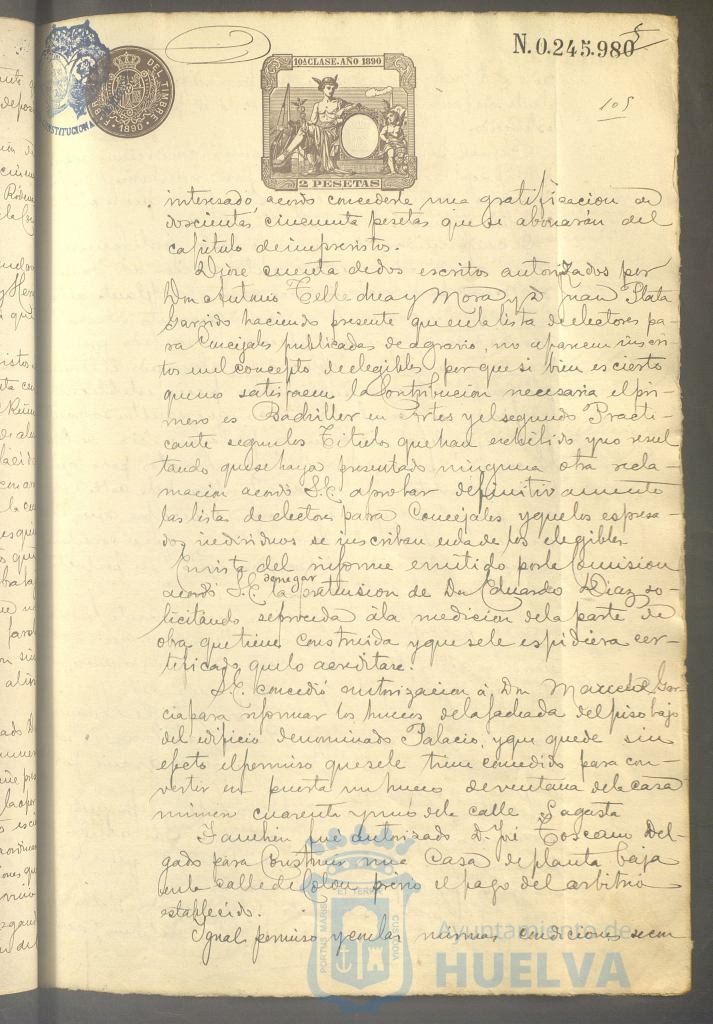 N.0.245.980
5
105
10ª CLASE. AÑO 1890
DEL TIMBRE
1890
2 PESETAS
interesado, acordó concederle una gratificacion de
doscientas cincuenta pesetas que se abonarán del
capitulo de imprevistos.
Dióse cuenta de dos escritos autorizados por
Don Antonio Tellechea y Mora y D. Juan Plata
Garrido haciendo presente que en la lista de electores pa-
ra Concejales publicadas de agravio, no aparecen inscri-
tos en el concepto de elegibles, por que si bien es cierto
que no satisfacen la Contribucion necesaria el pri-
mero es Bachiller en Artes y el segundo Practi-
cante segun los Titulos que han exhibido y no resul
tando que se haya presentado ninguna otra recla-
macion acordó S.E. aprobar definitivamente
las listas de electores para Concejales y que los espresa-
dos individuos se inscriban en la de los elegibles.
En vista del informe emitido por la Comision
acordó S.E. denegar la pretension de Don Eduardo Diaz so-
licitando se proceda á la medicion de la parte de
obra que tiene construida y que se le espidiera cer-
tificado, que lo acreditase.
S.E. concedió autorizacion á Don Marcelo Gar-
cia para reformar los huecos de la fachada del piso bajo
del edificio denominado Palacio, y que quede sin
efecto el permiso que se le tiene concedido para con-
vertir en puerta un hueco de ventana de la casa
número cuarenta y uno de la calle Sagasta
Tambien fué autorizado D. José Toscano Del-
gado para Construir una Casa de planta baja
en la calle de Colon, previo el pago del arbitrio
establecido.
Igual permiso y en las mismas condiciones se con
PORTUS MARIS
ET TERRÆ
CUSTODIA
Ayuntamiento de
HUELVA